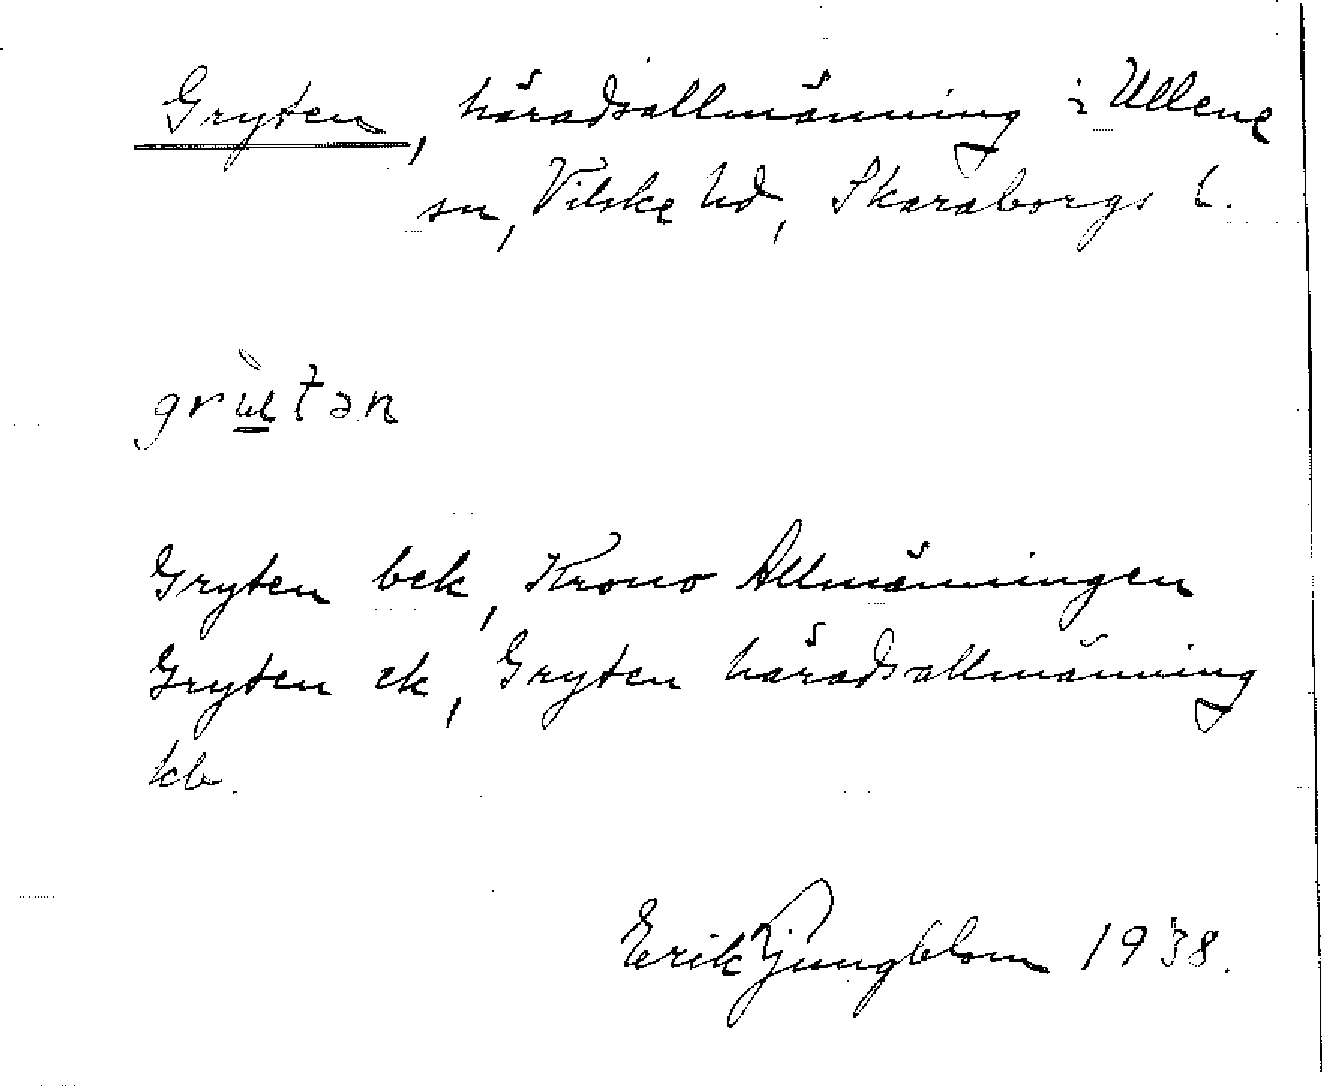 Gryten, häradsallmänning i Ullene
sn, Vilske hd, Skaraborgs l.
grùtən
Gryten bek, Krono Allmänningen
Gryten ek, Gryten häradsallmänning
kb.
Erik Ljungblom 1938.